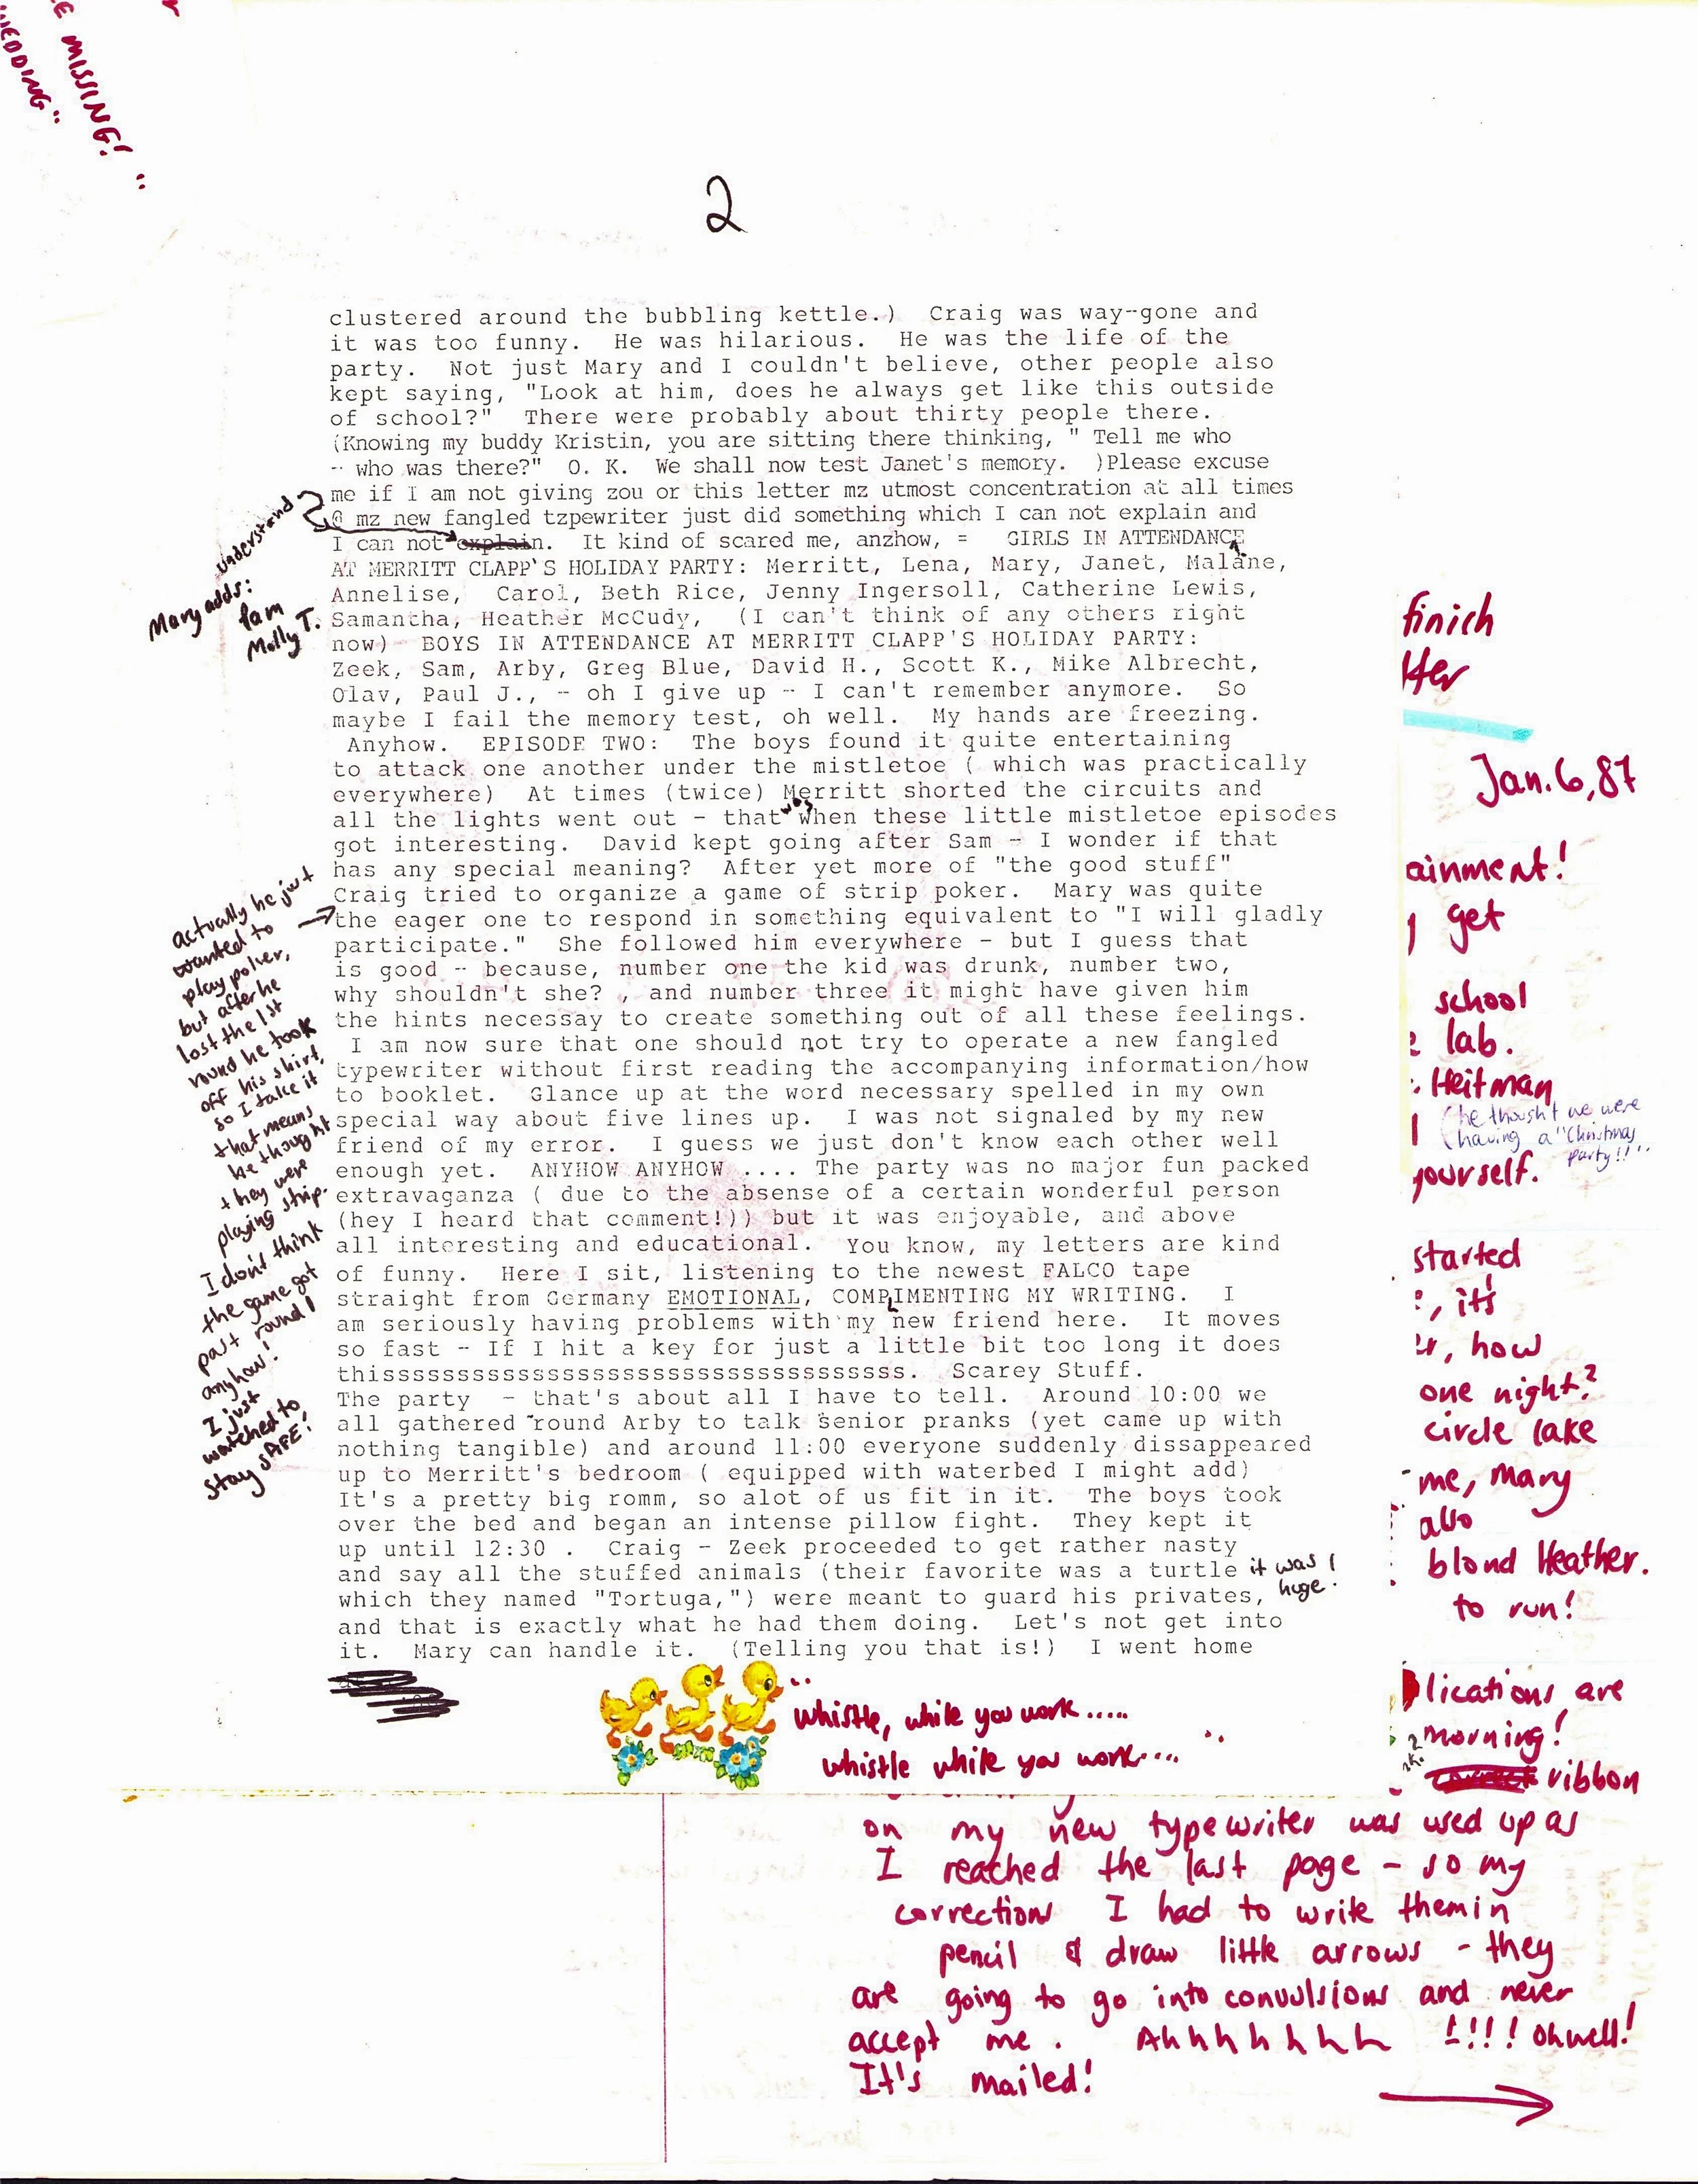 E MISSING!
WEDDING"
2
clustered around the bubbling kettle.)  Craig was way--gone and
it was too funny.  He was hilarious.  He was the life of the
party.  Not just Mary and I couldn't believe, other people also
kept saying, "Look at him, does he always get like this outside
of school?"  There were probably about thirty people there.
(Knowing my buddy Kristin, you are sitting there thinking, " Tell me who
-- who was there?"  O. K.  We shall now test Janet's memory.  )Please excuse
me if I am not giving zou or this letter mz utmost concentration at all times
@ mz new fangled tzpewriter just did something which I can not explain and
I can not explain.  It kind of scared me, anzhow, =   GIRLS IN ATTENDANCE
AT MERRITT CLAPP'S HOLIDAY PARTY: Merritt, Lena, Mary, Janet, Malane,
Annelise,  Carol, Beth Rice, Jenny Ingersoll, Catherine Lewis,
Samantha, Heather McCudy,  (I can't think of any others right
now)  BOYS IN ATTENDANCE AT MERRITT CLAPP'S HOLIDAY PARTY:
Zeek, Sam, Arby, Greg Blue, David H., Scott K., Mike Albrecht,
Olav, Paul J., -- oh I give up -- I can't remember anymore.  So
maybe I fail the memory test, oh well.  My hands are freezing.
Anyhow.  EPISODE TWO:  The boys found it quite entertaining
to attack one another under the mistletoe ( which was practically
everywhere)  At times (twice) Merritt shorted the circuits and
all the lights went out - that was when these little mistletoe episodes
got interesting.  David kept going after Sam - I wonder if that
has any special meaning?  After yet more of "the good stuff"
Craig tried to organize a game of strip poker.  Mary was quite
the eager one to respond in something equivalent to "I will gladly
participate."  She followed him everywhere - but I guess that
is good -- because, number one the kid was drunk, number two,
why shouldn't she? , and number three it might have given him
the hints necessay to create something out of all these feelings.
I am now sure that one should not try to operate a new fangled
typewriter without first reading the accompanying information/how
to booklet.  Glance up at the word necessary spelled in my own
special way about five lines up.  I was not signaled by my new
friend of my error.  I guess we just don't know each other well
enough yet.  ANYHOW ANYHOW .... The party was no major fun packed
extravaganza ( due to the absense of a certain wonderful person
(hey I heard that comment!)) but it was enjoyable, and above
all interesting and educational.  You know, my letters are kind
of funny.  Here I sit, listening to the newest FALCO tape
straight from Germany EMOTIONAL, COMPLIMENTING MY WRITING.  I
am seriously having problems with my new friend here.  It moves
so fast - If I hit a key for just a little bit too long it does
thisssssssssssssssssssssssssssssssssss.  Scarey Stuff.
The party  - that's about all I have to tell.  Around 10:00 we
all gathered 'round Arby to talk senior pranks (yet came up with
nothing tangible) and around 11:00 everyone suddenly dissappeared
up to Merritt's bedroom ( equipped with waterbed I might add)
It's a pretty big romm, so alot of us fit in it.  The boys took
over the bed and began an intense pillow fight.  They kept it
up until 12:30 .  Craig - Zeek proceeded to get rather nasty
and say all the stuffed animals (their favorite was a turtle it was
huge!
which they named "Tortuga,") were meant to guard his privates,
and that is exactly what he had them doing.  Let's not get into
it.  Mary can handle it.  (Telling you that is!)  I went home
understand
Mary adds:
Pam
Molly T.
actually he just
wanted to
play poker,
but after he
lost the 1st
round he took
off his shirt,
so I take it
that means
he thought
they were
playing strip.
I don't think
the game got
past round 1
anyhow!
I just
watched to
stay SAFE!
whistle, while you work.....
whistle while you work....
finich
tter
Jan. 6, 87
ainment!
get
school
lab.
Heitman
(he thought we were
(having a "Christmas
party!!"
yourself.
started
, it's
, how
one night?
circle lake
me, Mary
also
blond Heather.
to run!
lications are
morning!
ribbon
on my new typewriter was used up as
I reached the last page - so my
corrections I had to write them in
pencil & draw little arrows - they
are going to go into convulsions and never
accept me. Ahhhhhhh !!!! Oh well!
It's mailed!